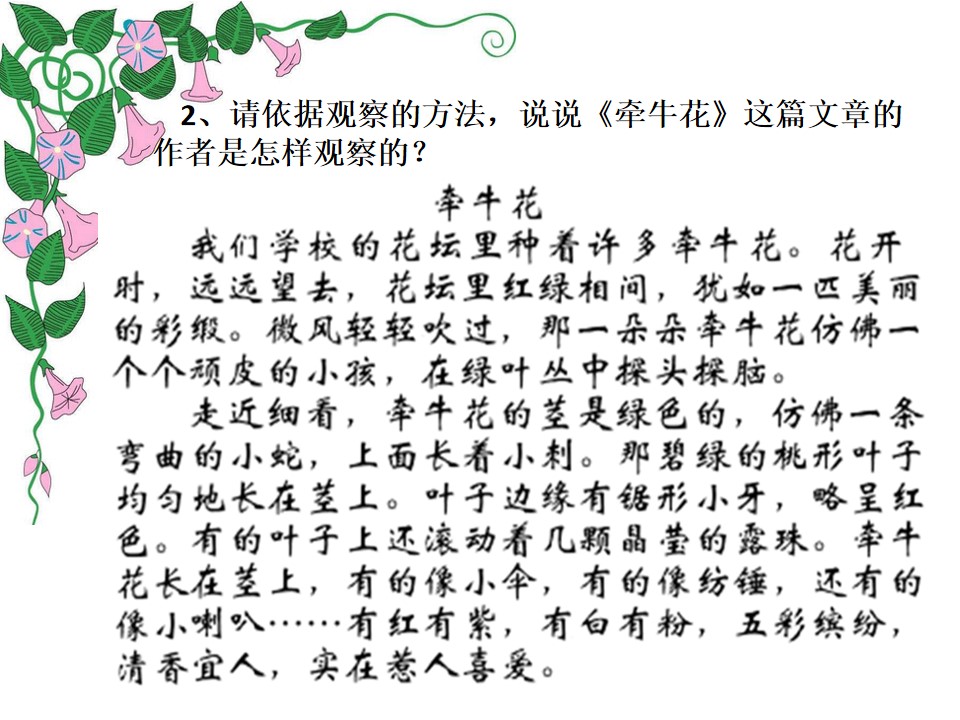 2、请依据观察的方法，说说《牵牛花》这篇文章的
作者是怎样观察的？
牵牛花
我们学校的花坛里种着许多牵牛花。花开
时，远远望去，花坛里红绿相间，犹如一匹美丽
的彩缎。微风轻轻吹过，那一朵朵牵牛花仿佛一
个个顽皮的小孩，在绿叶丛中探头探脑。
走近细看，牵牛花的茎是绿色的，仿佛一条
弯曲的小蛇，上面长着小刺。那碧绿的桃形叶子
均匀地长在茎上。叶子边缘有锯形小牙，略呈红
色。有的叶子上还滚动着几颗晶莹的露珠。牵牛
花长在茎上，有的像小伞，有的像纺锤，还有的
像小喇叭……有红有紫，有白有粉，五彩缤纷，
清香宜人，实在惹人喜爱。